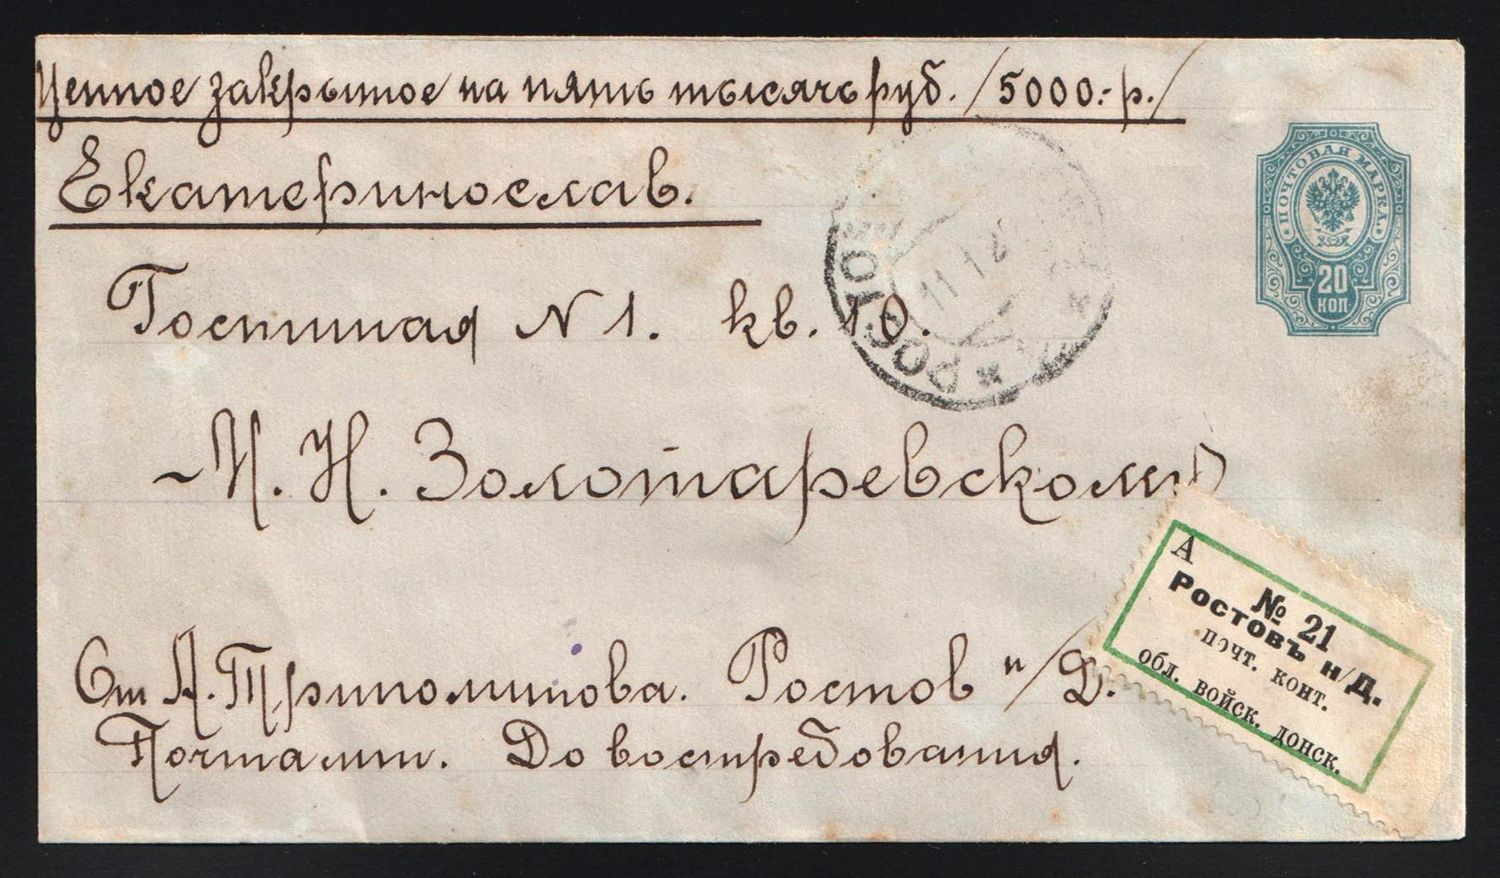 Ценное закрытое на пять тысячь руб. /5000:-р./
Екатеринослав.
Гостиная N 1. кв. 10.
ПОЧТОВАЯ МАРКА
20
КОП
РОСТОВ
11 12
И. Н. Золотаревскому
А
№ 21
Ростовъ н/Д.
почт. конт.
обл. войск. донск.
От А. Триполитова. Ростов н/Д.
Почтамт. До востребования.